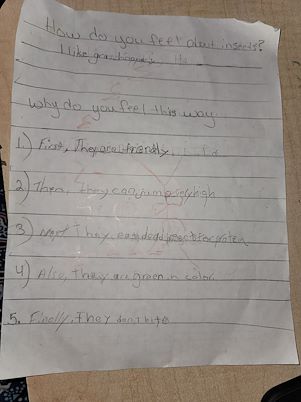 How do you feel about insects?
I like grasshoppers
Why do you feel this way
1.) First, They are friendly
2) Then, They can jump very high
3) Next They eat dead insect for protein
4) Also, They are green in color.
5. Finally, They don't bite